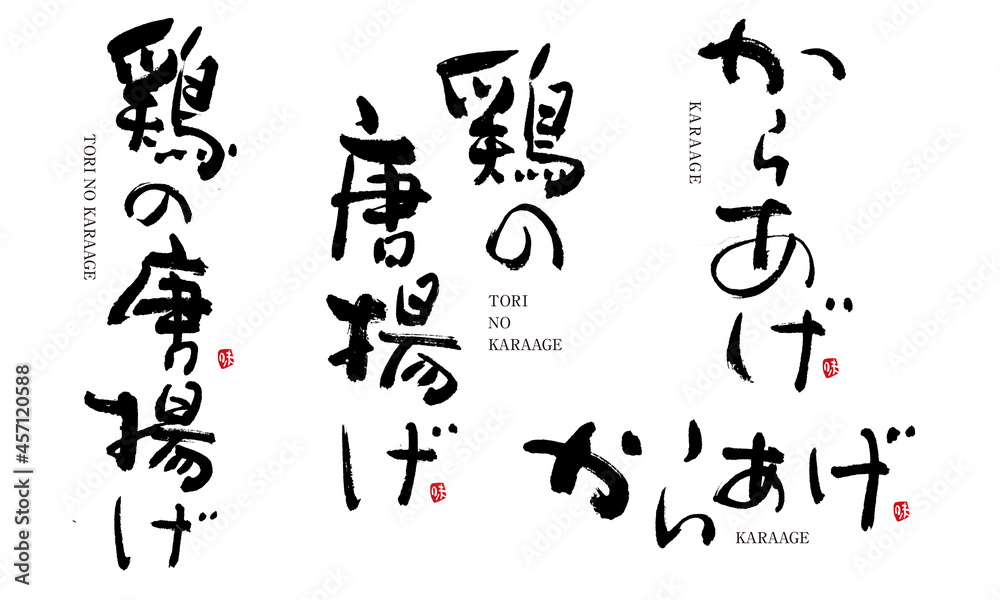 鶏の唐揚げ
TORI NO KARAAGE
味
鶏の
唐揚げ
TORI
NO
KARAAGE
味
からあげ
KARAAGE
味
からあげ
KARAAGE
味
Adobe Stock | #457120588
Adobe Stock